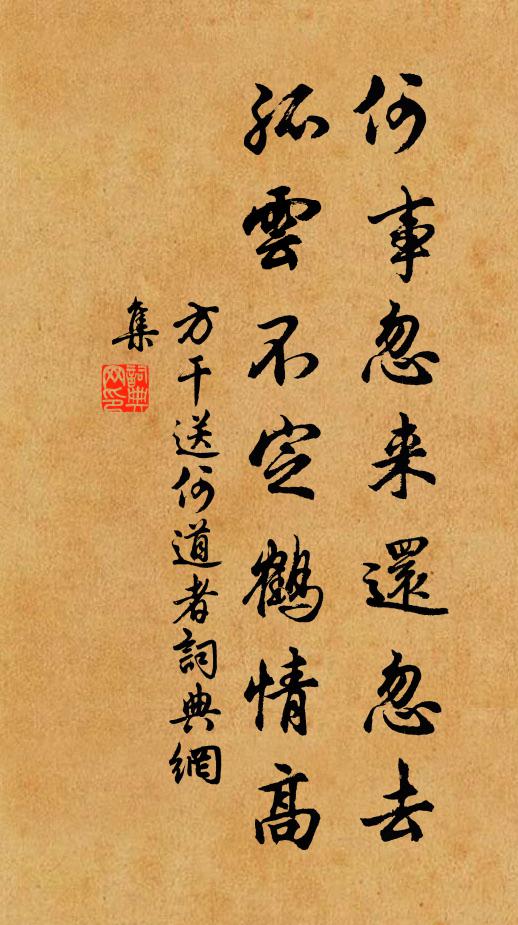 何事忽来還忽去
孤雲不定鶴情高
方干送何道者詞典網
集
詞典
网印